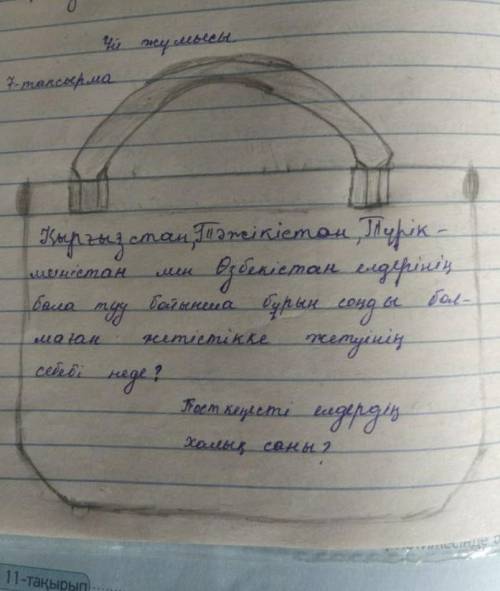 Үй жұмысы
7-тапсырма
Қырғызстан, Тәжікістан, Түрік-
меністан мен Өзбекістан елдерінің
бала туу бойынша бұрын соңды бол-
маған жетістікке жетуінің
себебі неде?
Посткеңестті елдердің
халық саны?
11-тақырып